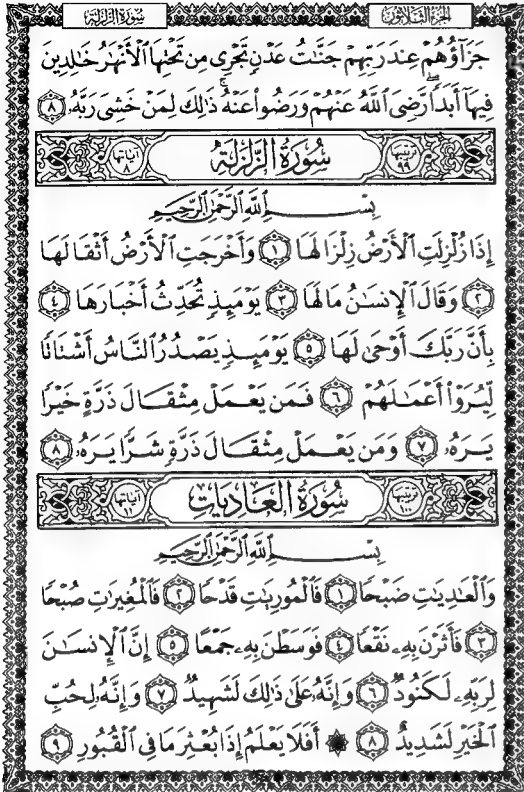 الجزء الثلاثون
سورة الزلزلة
جَزَآؤُهُمْ عِندَ رَبِّهِمْ جَنَّٰتُ عَدْنٍ تَجْرِى مِن تَحْتِهَا ٱلْأَنْهَٰرُ خَٰلِدِينَ
فِيهَآ أَبَدًا رَّضِىَ ٱللَّهُ عَنْهُمْ وَرَضُوا۟ عَنْهُ ذَٰلِكَ لِمَنْ خَشِىَ رَبَّهُۥ ٨
ترتيبها ٩٩ سُورَةُ الزَّلْزَلَةِ آياتها ٨
بِسْمِ ٱللَّهِ ٱلرَّحْمَٰنِ ٱلرَّحِيمِ
إِذَا زُلْزِلَتِ ٱلْأَرْضُ زِلْزَالَهَا ١ وَأَخْرَجَتِ ٱلْأَرْضُ أَثْقَالَهَا
٢ وَقَالَ ٱلْإِنسَٰنُ مَا لَهَا ٣ يَوْمَئِذٍ تُحَدِّثُ أَخْبَارَهَا ٤
بِأَنَّ رَبَّكَ أَوْحَىٰ لَهَا ٥ يَوْمَئِذٍ يَصْدُرُ ٱلنَّاسُ أَشْتَاتًا
لِّيُرَوْا۟ أَعْمَٰلَهُمْ ٦ فَمَن يَعْمَلْ مِثْقَالَ ذَرَّةٍ خَيْرًا
يَرَهُۥ ٧ وَمَن يَعْمَلْ مِثْقَالَ ذَرَّةٍ شَرًّا يَرَهُۥ ٨
ترتيبها ١٠٠ سُورَةُ العَادِيَاتِ آياتها ١١
بِسْمِ ٱللَّهِ ٱلرَّحْمَٰنِ ٱلرَّحِيمِ
وَٱلْعَٰدِيَٰتِ ضَبْحًا ١ فَٱلْمُورِيَٰتِ قَدْحًا ٢ فَٱلْمُغِيرَٰتِ صُبْحًا
٣ فَأَثَرْنَ بِهِۦ نَقْعًا ٤ فَوَسَطْنَ بِهِۦ جَمْعًا ٥ إِنَّ ٱلْإِنسَٰنَ
لِرَبِّهِۦ لَكَنُودٌ ٦ وَإِنَّهُۥ عَلَىٰ ذَٰلِكَ لَشَهِيدٌ ٧ وَإِنَّهُۥ لِحُبِّ
ٱلْخَيْرِ لَشَدِيدٌ ٨ ۞ أَفَلَا يَعْلَمُ إِذَا بُعْثِرَ مَا فِى ٱلْقُبُورِ ٩